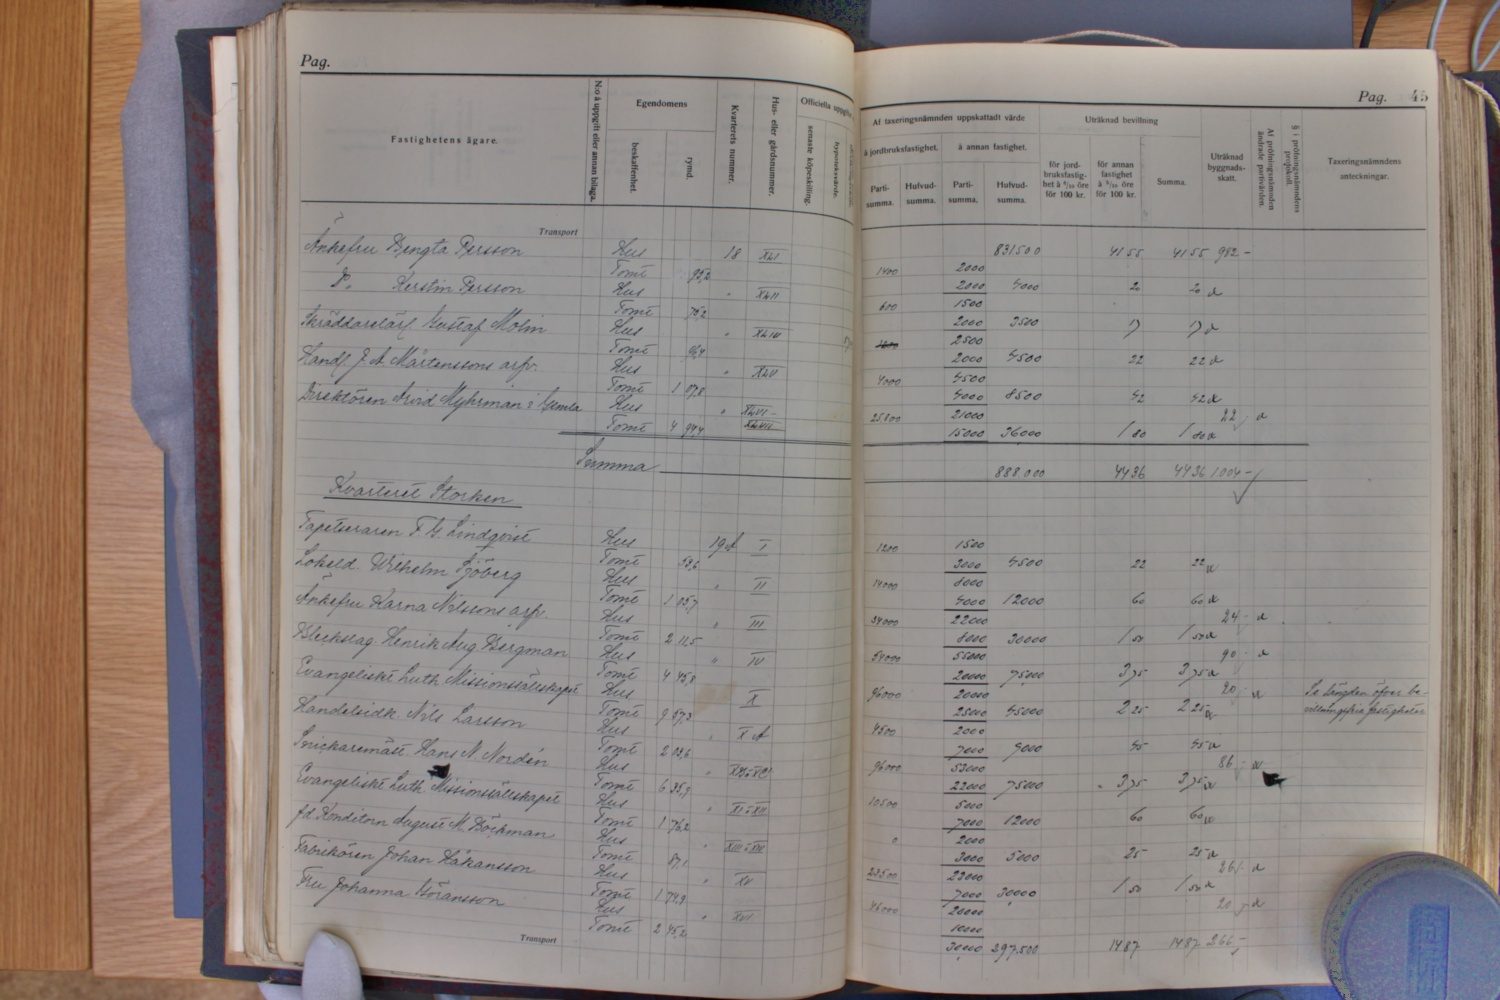 Pag.
Fastighetens ägare.
N:o å uppgift eller annan bilaga.
Egendomens
beskaffenhet.
rymd.
Kvarterets nummer.
Hus- eller gårdsnummer.
Officiella uppgifter
senaste köpeskilling.
Transport
Änkefru Bengta Persson Hus 18 XLI
Tomt
D:o Kerstin Persson Hus " XLII
Tomt
Gustaf Molin Hus " XLIII
Tomt
Handl. J. A. Mårtenssons arfv. Hus " XLV
Tomt 1 07,8
Direktören Arvid Myhrman i Hus "
Tomt 4
Summa
Kvarteret Storken
Tapetseraren F. G. Lindqvist Hus 19 A I
Tomt
Wilhelm Sjöberg Hus " II
Tomt 1 05,7
Änkefru Karna Nilssons arfv. Hus " III
Tomt 2 11,5
Blekslag. Henrik Aug. Bergman Hus " IV
Tomt 4 45,8
Evangeliskt Luth. Missionssällskapet Hus X
Tomt 9 57,3
Handelsidk. Nils Larsson Hus " X A
Tomt 2 03,6
Snickaremäst. Hans N. Nordén Hus "
Tomt 6 35,9
Evangeliskt Luth. Missionssällskapet Hus " XI & XII
Tomt 1 76,2
f.d. Konditorn August M. Böckman Hus " XIII & XIV
Tomt 87,1
Fabrikören Johan Håkansson Hus " XV
Tomt 1 74,9
Fru Johanna Göransson Hus " XVI
Tomt 2 45,2
Transport
Pag. 45
Af taxeringsnämnden uppskattadt värde
å jordbruksfastighet.
å annan fastighet.
Parti-summa.
Hufvud-summa.
Parti-summa.
Hufvud-summa.
Uträknad bevillning
för jord-bruksfastig-het à 6/10 öre för 100 kr.
för annan fastighet à 5/10 öre för 100 kr.
Summa.
Uträknad byggnads-skatt.
Af pröfningsnämnden ändrade partivärden.
§ i pröfningsnämndens protokoll.
Taxeringsnämndens anteckningar.
831500 4155 4155 982 -
1400 2000
2000 4000 20 20
600 1500
2000 3500 17 17
2500
2000 4500 22 22
4000 4500
4000 8500 42 42
25800 21000 22
15000 36000 1 80 1 80
888.000 4436 4436 1004 -
1200 1500
3000 4500 22 22
14000 8000
4000 12000 60 60
34000 22000 24
8000 30000 1 50 1 50
54000 55000 90
20000 75000 3 75 3 75
96000 20000 20 Se längden öfver be-
25000 45000 2 25 2 25 villningsfria fastigheter
4500 2000
7000 9000 45 45
96000 53000 86
22000 75000 3 75 3 75
10500 5000
7000 12000 60 60
2000
3000 5000 25 25
23500 23000 26
7000 30000 1 50 1 50
46000 20000 20
10000
30000 297.500 1487 1487 266 -